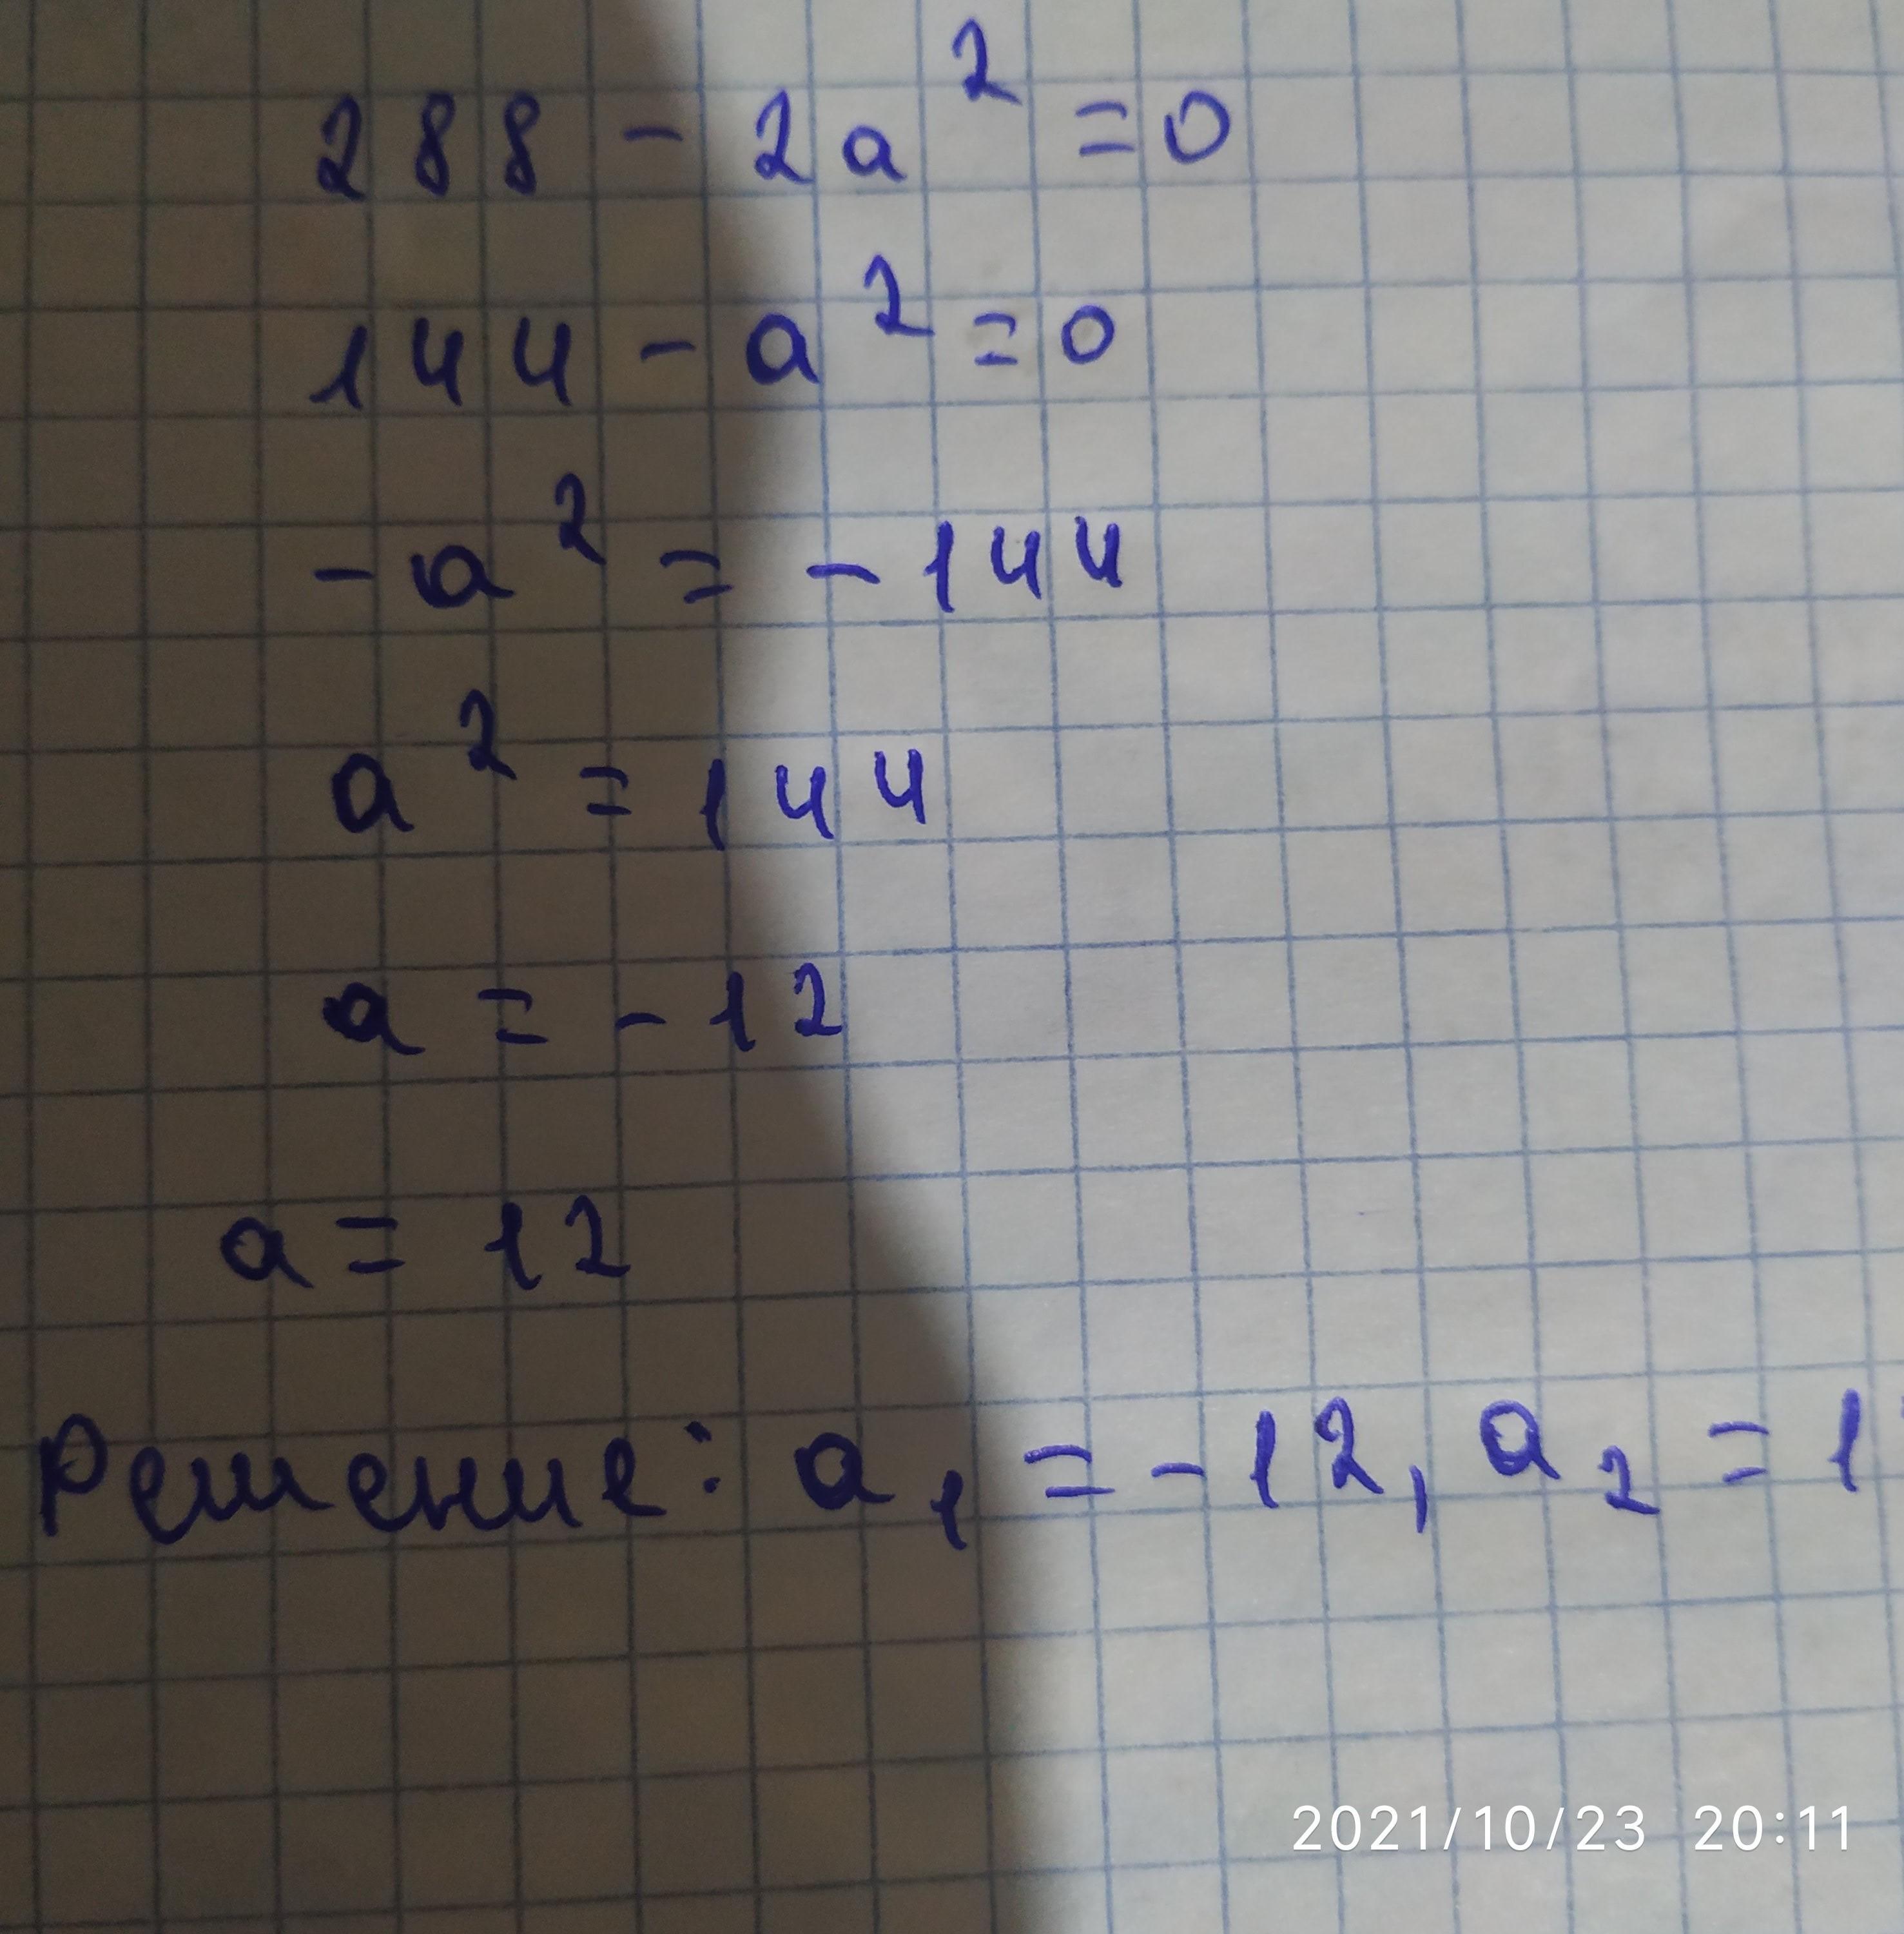 288 - 2a² = 0
144 - a² = 0
-a² = -144
a² = 144
a = -12
a = 12
Решение: a₁ = -12, a₂ = 1
2021/10/23 20:11